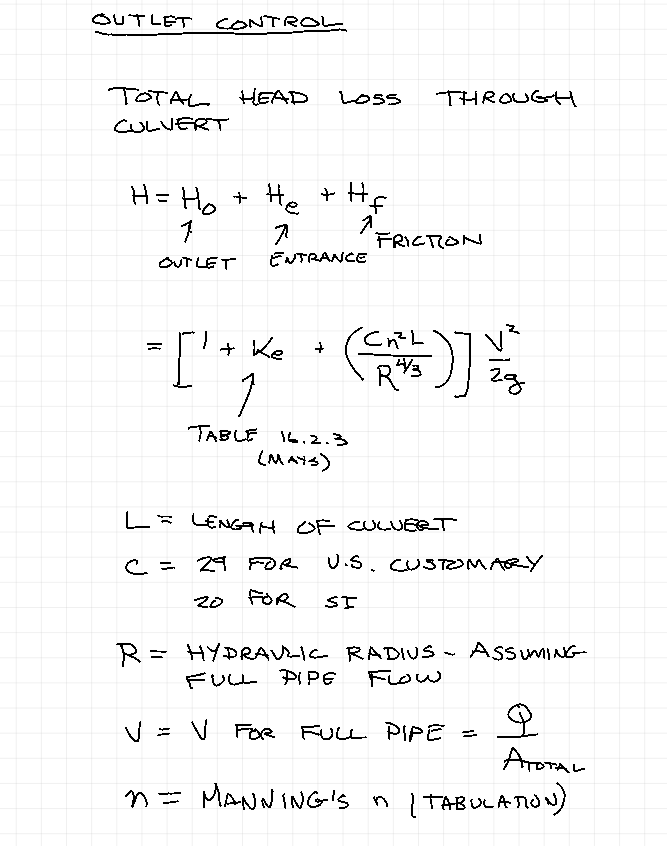 OUTLET CONTROL
TOTAL HEAD LOSS THROUGH
CULVERT
H = H₀ + Hₑ + H_f
OUTLET ENTRANCE FRICTION
= [1 + Kₑ + (Cn²L / R^4/3)] V²/2g
TABLE 16.2.3
(MAYS)
L = LENGTH OF CULVERT
C = 29 FOR U.S. CUSTOMARY
20 FOR SI
R = HYDRAULIC RADIUS - ASSUMING
FULL PIPE FLOW
V = V FOR FULL PIPE = Q / A_TOTAL
n = MANNING'S n (TABULATION)